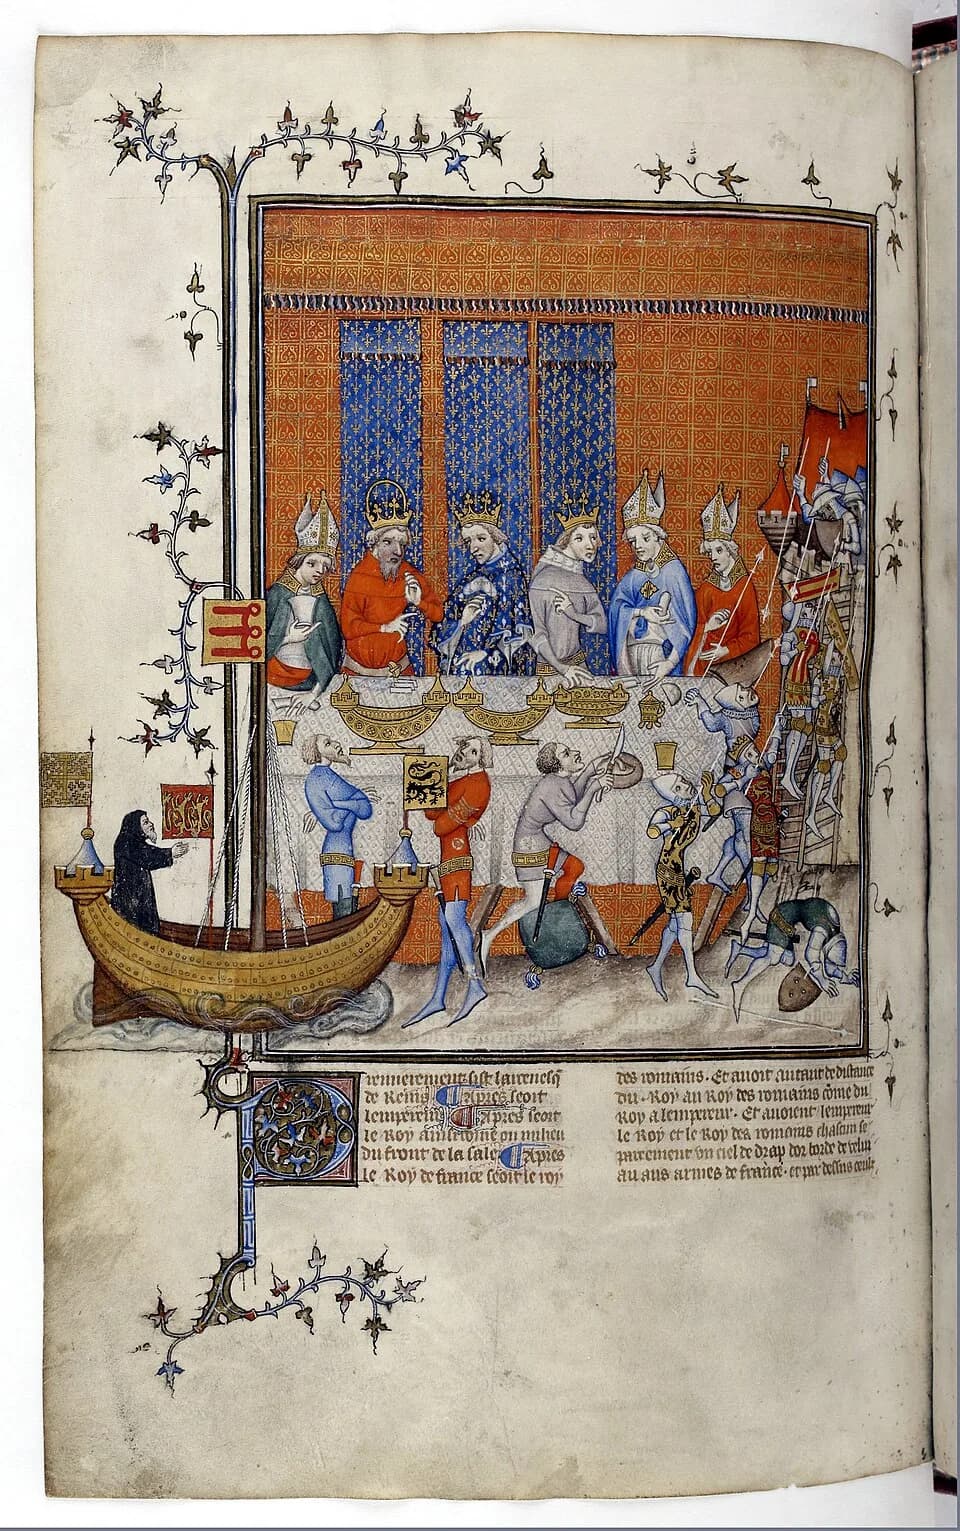 remierement sist larcevesq
de Reins ¶ Apres seoit
lempereur ¶ Apres seoit
le Roy auuecques ou milieu
du front de la sale ¶ Apres
le Roy de france seoit le roy
des romains. Et auoit autant de distance
du. Roy au Roy des romains come du
Roy a lempereur. Et auoient lempereur
le Roy et le Roy des romains chascun se
parement vn ciel de drap dor borde de veluiau
aus armes de france. et par dessus